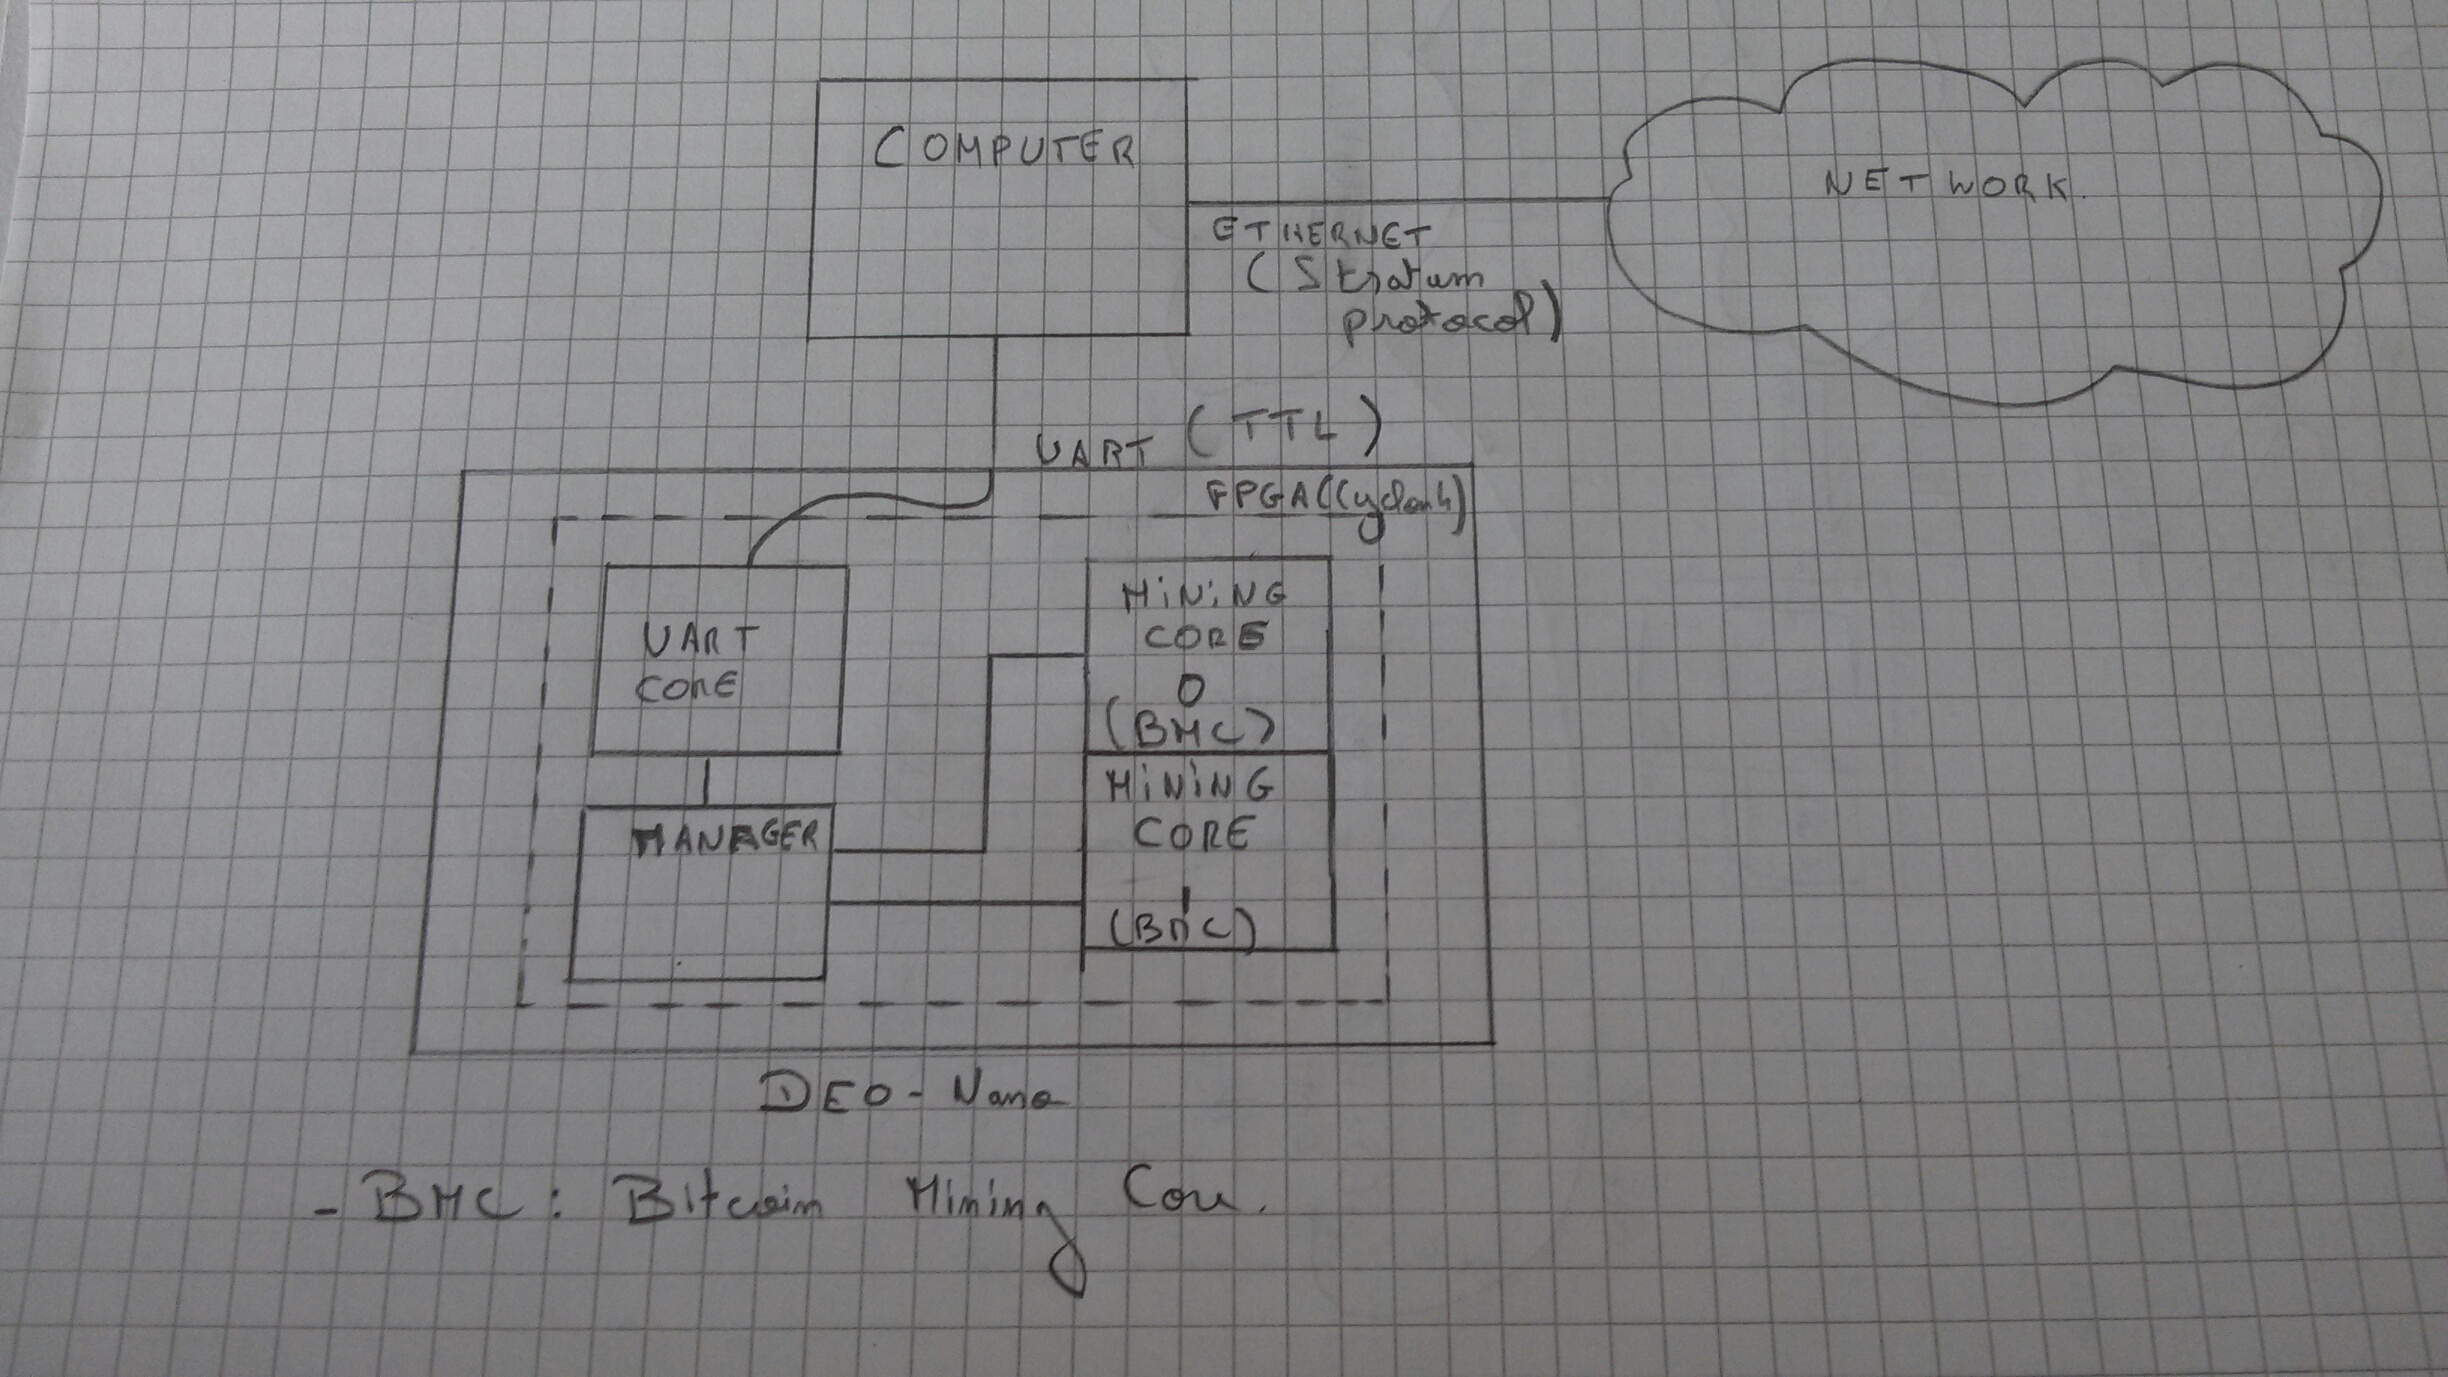 COMPUTER
NETWORK.
ETHERNET
(Stratum
protocol)
UART (TTL)
FPGA (Cyclon 4)
UART
CORE
MINING
CORE
0
(BMC)
MANAGER
MINING
CORE
1
(BMC)
DE0-Nano
- BMC: Bitcoin Mining Core.